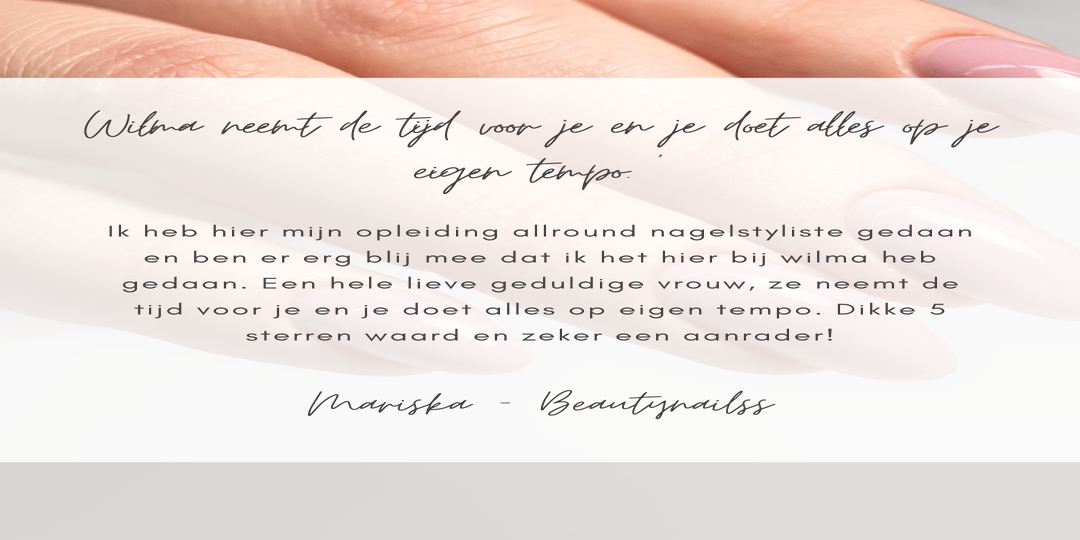 Wilma neemt de tijd voor je en je doet alles op je
eigen tempo.'
Ik heb hier mijn opleiding allround nagelstyliste gedaan
en ben er erg blij mee dat ik het hier bij wilma heb
gedaan. Een hele lieve geduldige vrouw, ze neemt de
tijd voor je en je doet alles op eigen tempo. Dikke 5
sterren waard en zeker een aanrader!
Mariska - Beautynailss